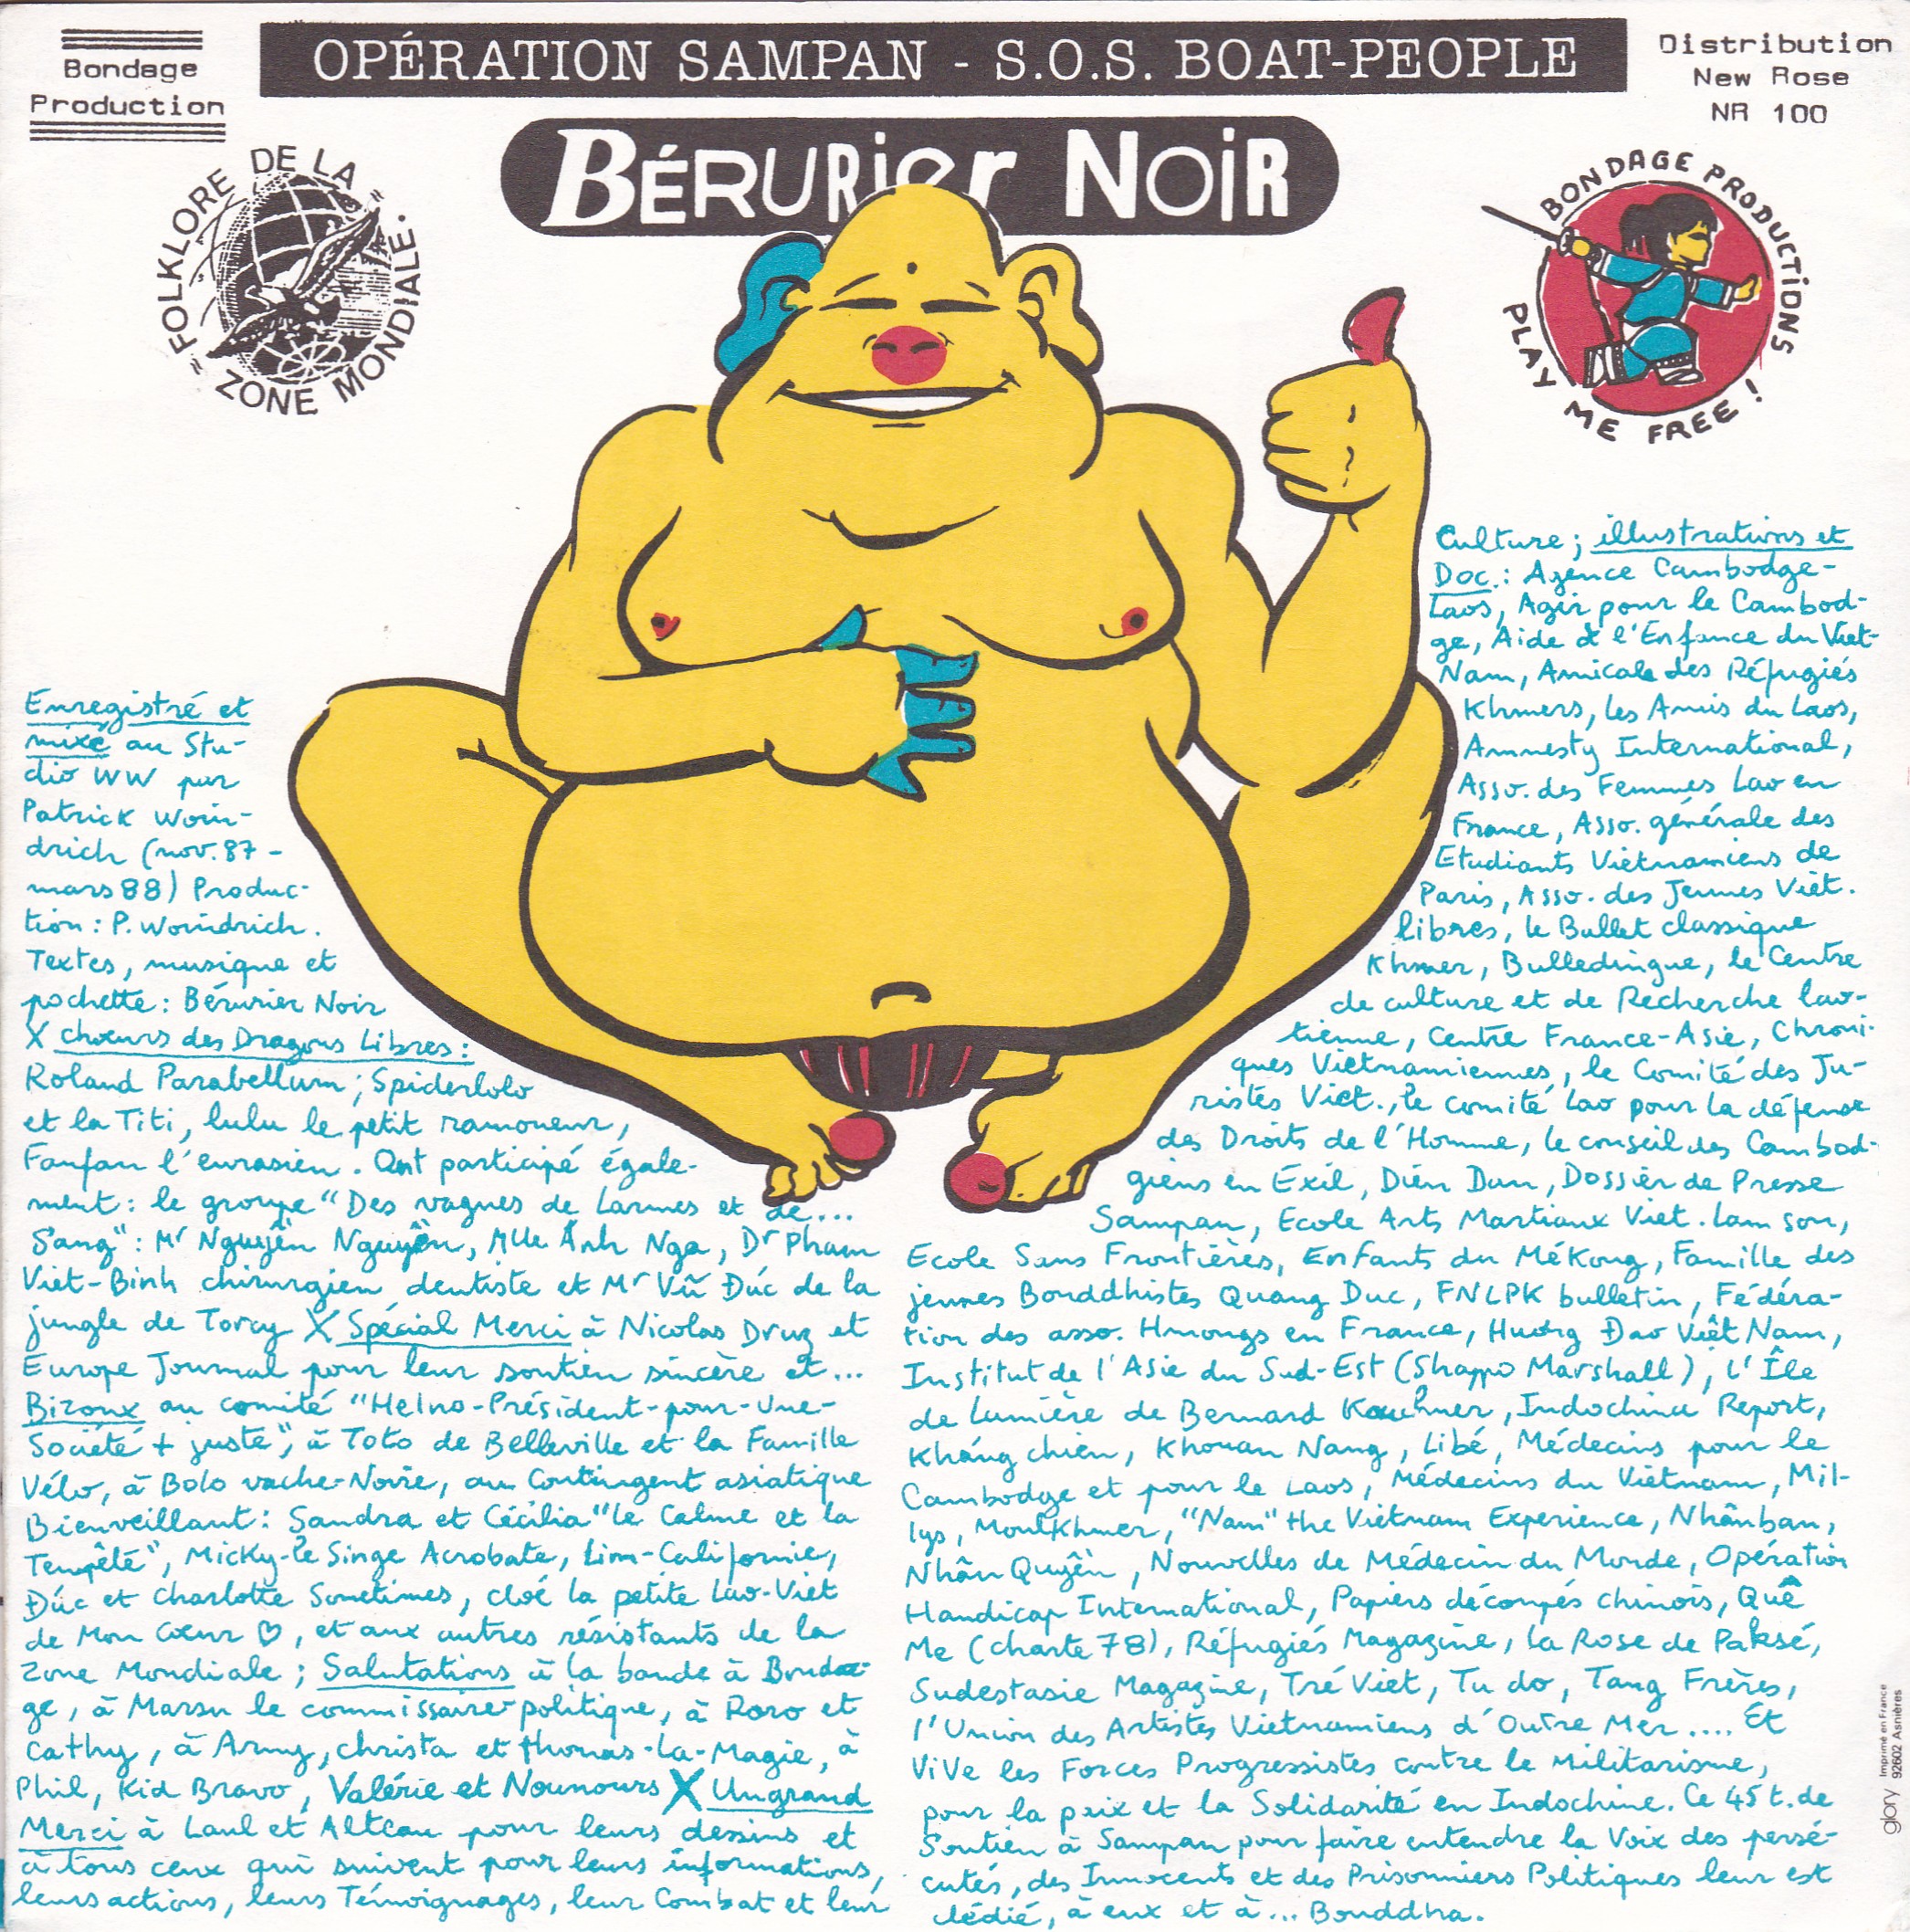 Bondage
Production
OPÉRATION SAMPAN - S.O.S. BOAT-PEOPLE
Distribution
New Rose
NR 100
BÉRURiEr NOiR
"FOLKLORE DE LA ZONE MONDIALE."
BONDAGE PRODUCTIONS
PLAY ME FREE !
Enregistré et
mixé au Stu-
dio WW par
Patrick Woin-
drich (nov. 87 -
mars 88) Produc-
tion : P. Woindrich.
Textes, musique et
pochette : Bérurier Noir
X chœurs des Dragons Libres :
Roland Parabellum ; Spiderlolo
et la Titi, lulu le petit ramoneur,
Fanfan l'eurasien. Ont participé égale-
ment : le groupe "Des vagues de Larmes et de...
Sang" : Mr Nguyên Nguyên, Mlle Ánh Nga, Dr Pham
Viet-Binh chirurgien dentiste et Mr Vũ Đúc de la
jungle de Torcy X Spécial Merci à Nicolas Druz et
Europe Journal pour leur soutien sincère et...
Bizoux au comité "Helno-Président-pour-Une-
Société + juste", à Toto de Belleville et la Famille
Vélo, à Bolo vache-Noire, au Contingent asiatique
Bienveillant : Sandra et Cécilia "le Calme et la
Tempête", Micky-le Singe Acrobate, Lim-Californie,
Đúc et Charlotte Sometimes, cloé la petite Lao-Viet
de Mon Cœur ♡, et aux autres résistants de la
Zone Mondiale ; Salutations à la bande à Bonda-
ge, à Marsu le commissaire-politique, à Roro et
Cathy, à Army, christa et thomas-La-Magie, à
Phil, Kid Bravo, Valérie et Nounours X Un grand
Merci à Laul et Alteau pour leurs dessins et
à tous ceux qui suivent pour leurs informations,
leurs actions, leurs Témoignages, leur Combat et leur
Culture ; illustrations et
Doc. : Agence Cambodge-
Laos, Agir pour le Cambod-
ge, Aide à l'Enfance du Viet-
Nam, Amicale des Réfugiés
Khmers, Les Amis du Laos,
Amnesty International,
Asso. des Femmes Lao en
France, Asso. générale des
Etudiants Vietnamiens de
Paris, Asso. des Jeunes Viêt.
libres, le Ballet classique
Khmer, Bulledingue, le Centre
de culture et de Recherche lao-
tienne, Centre France-Asie, Chroni-
ques Vietnamiennes, le Comité des Ju-
ristes Viet., le comité Lao pour la défense
des Droits de l'Homme, le conseil des Cambod-
giens en Exil, Diên Dan, Dossier de Presse
Sampan, Ecole Arts Martiaux Viet. Lam Son,
Ecole Sans Frontières, Enfants du Mékong, Famille des
jeunes Bouddhistes Quang Duc, FNLPK bulletin, Fédéra-
tion des asso. Hmongs en France, Huong Đao Viêt Nam,
Institut de l'Asie du Sud-Est (Shappo Marshall), L'Île
de Lumière de Bernard Kouchner, Indochina Report,
Kháng chiên, Khouan Nang, Libé, Médecins pour le
Cambodge et pour le Laos, Médecins du Vietnam, Mil-
lys, MoulKhmer, "Nam" the Vietnam Experience, Nhân ban,
Nhân Quyên, Nouvelles de Médecin du Monde, Opération
Handicap International, Papiers découpés chinois, Quê
Me (charte 78), Réfugiés Magazine, La Rose de Paksé,
Sudestasie Magazine, Tré Viet, Tu do, Tang Frères,
l'Union des Artistes Vietnamiens d'Outre Mer.... Et
ViVe les Forces Progressistes contre le Militarisme,
pour la paix et la Solidarité en Indochine. Ce 45 t. de
Soutien à Sampan pour faire entendre la Voix des persé-
cutés, des Innocents et des Prisonniers Politiques leur est
dédié, à eux et à... Bouddha.
glory Imprimé en France
92602 Asnières